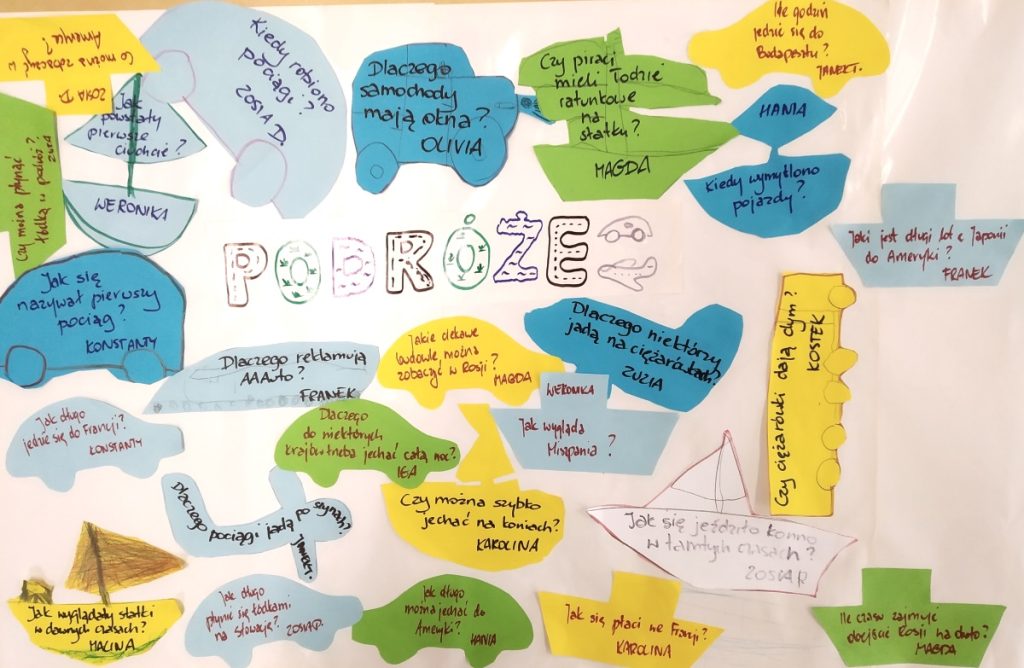 Co można zobaczyć w
Ameryce?
ZOSIA D.
Jak
powstały
pierwsze
ciuchcie?
WERONIKA
Kiedy robiono
pociągi?
ZOSIA D.
Dlaczego
samochody
mają okna?
OLIVIA
Czy piraci
mieli łodzie
ratunkowe
na
statku?
MAGDA
Ile godzin
jedzie się do
Budapesztu?
JANEK T.
HANIA
Kiedy wymyślono
pojazdy?
Czy można płynąć
łódką w podróż?
ZUZIA
Jaki jest długi lot z Japonii
do Ameryki?
FRANEK
PODRÓŻE
Jak się
nazywał pierwszy
pociąg?
KONSTANTY
Dlaczego reklamują
AAAuto?
FRANEK
Jakie ciekawe
budowle można
zobaczyć w Rosji?
MAGDA
Dlaczego niektórzy
jadą na ciężarówkach?
ZUZIA
Czy ciężarówki dają dym?
KOSTEK
Jak długo
jedzie się do Francji?
KONSTANTY
Dlaczego
do niektórych
krajów trzeba jechać całą noc?
IGA
WERONIKA
Jak wygląda
Hiszpania?
Dlaczego pociągi jadą po szynach?
Czy można szybko
jechać na koniach?
KAROLINA
Jak się jeździło konno
w tamtych czasach?
ZOSIA P.
Jak wyglądały statki
w dawnych czasach?
MALINA
Jak długo
płynie się łódkami
na Słowację?
ZOSIA P.
Jak długo
można jechać do
Ameryki?
HANIA
Jak się płaci we Francji?
KAROLINA
Ile czasu zajmuje
dojść Rosji na około?
MAGDA